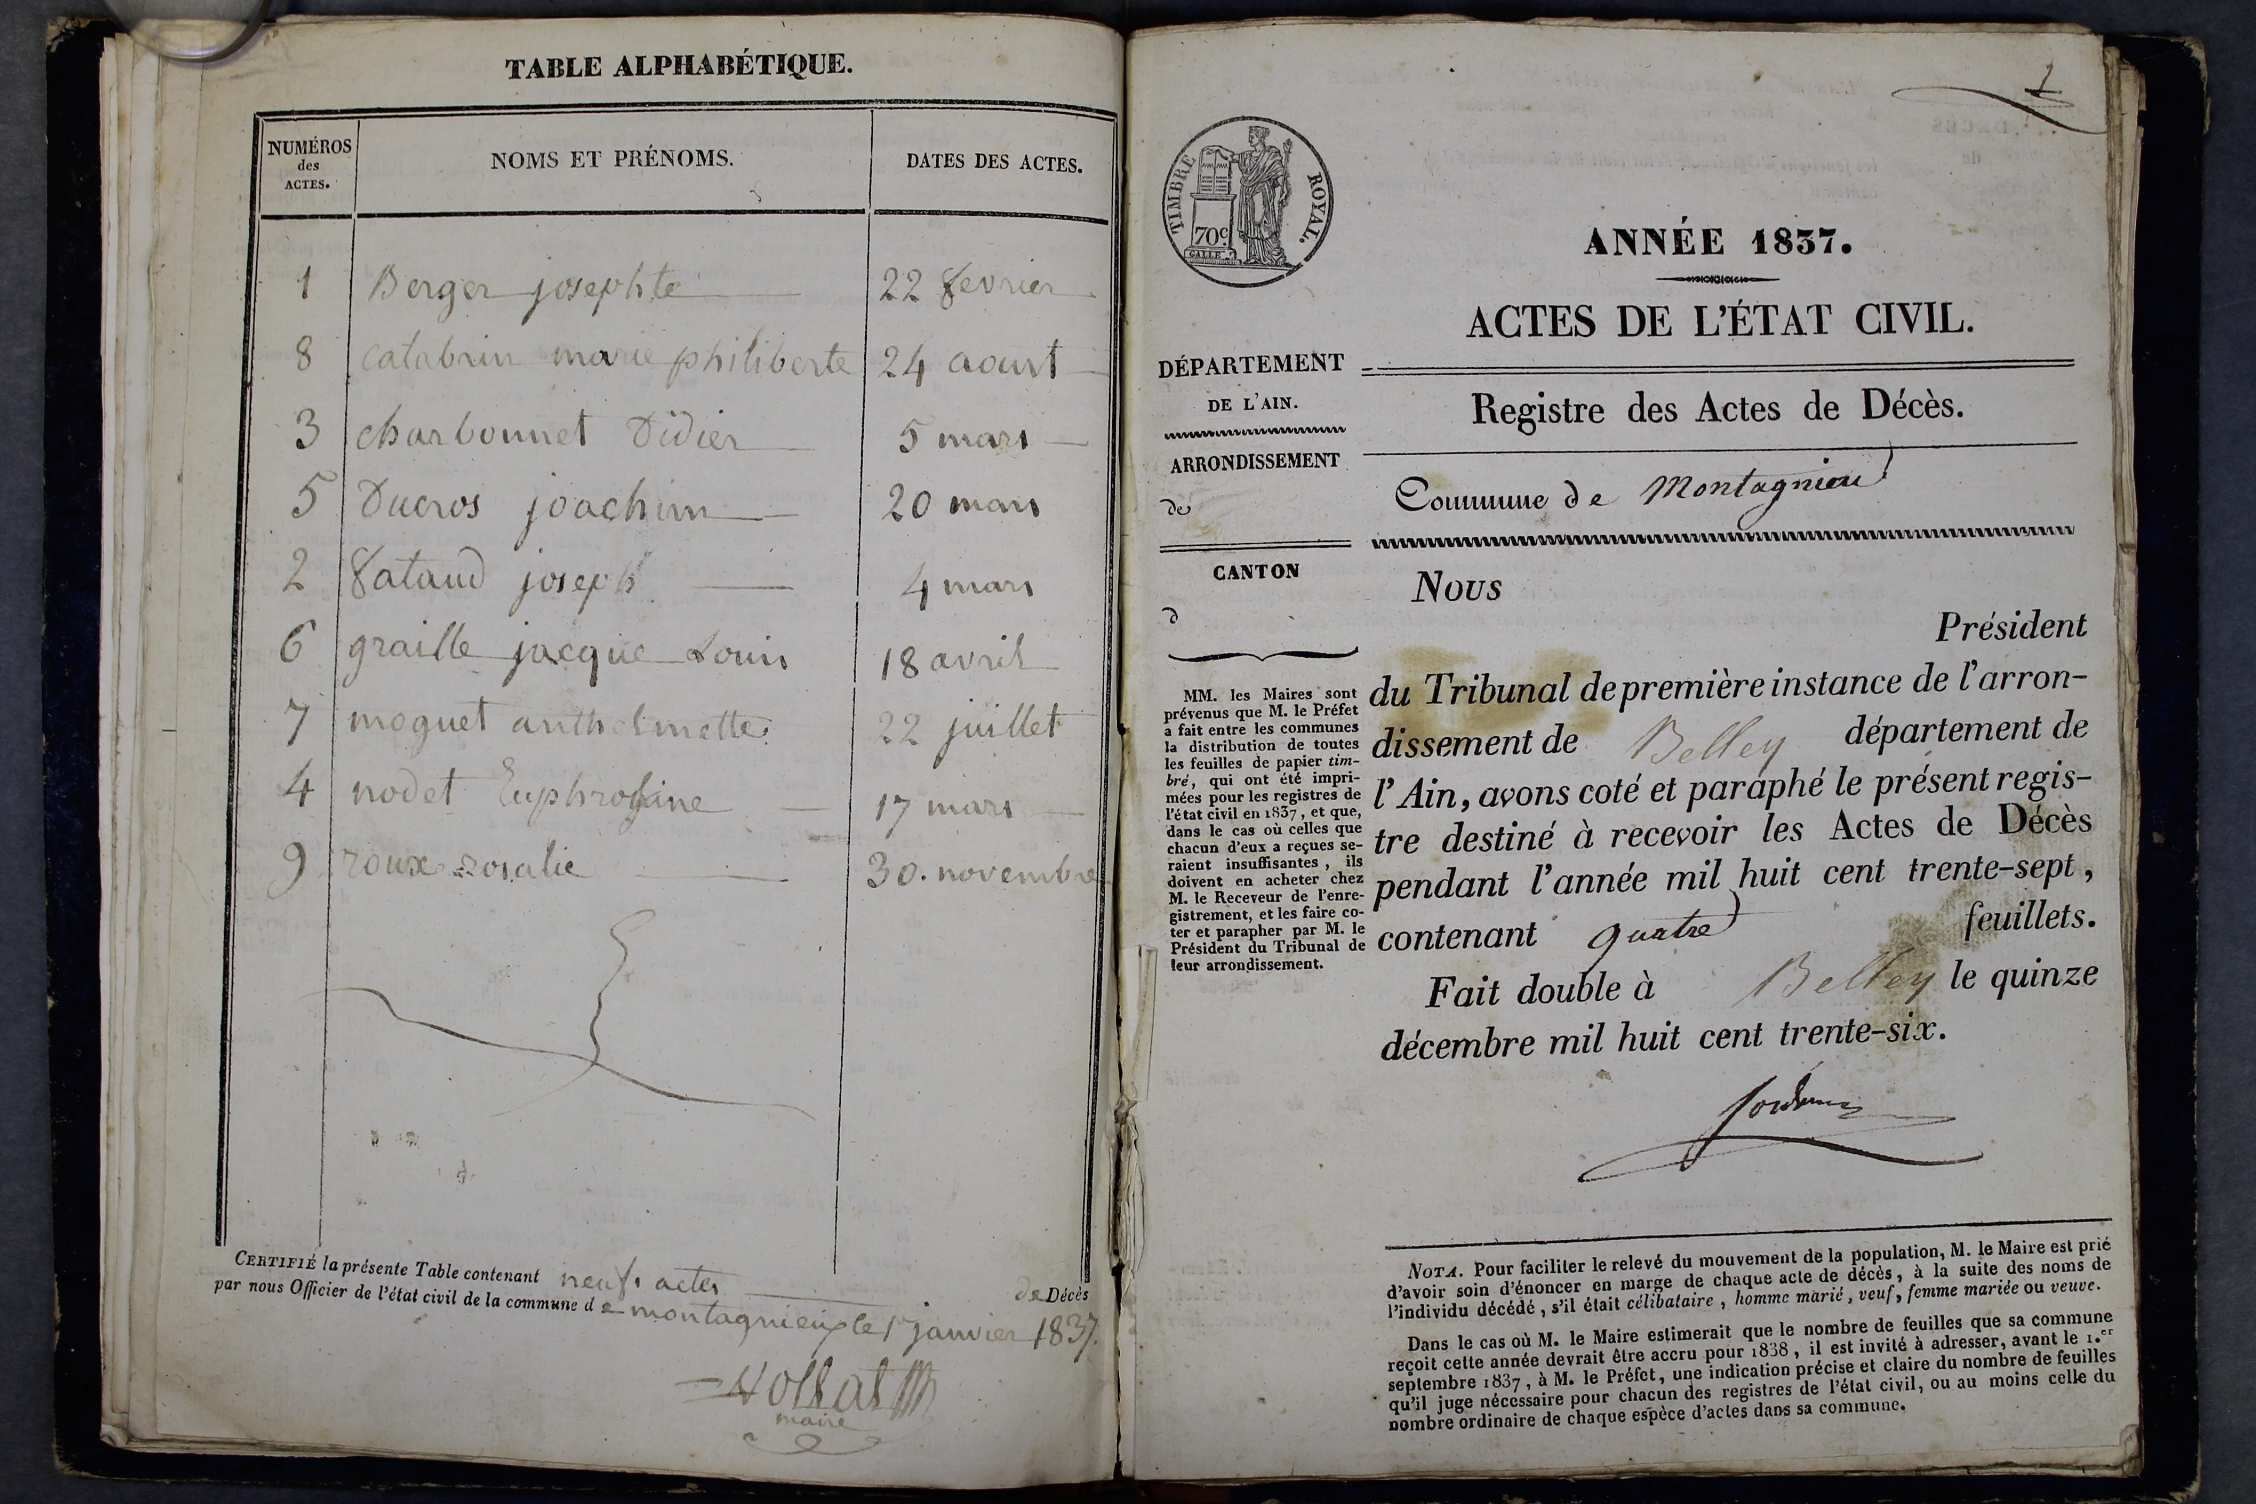 TABLE ALPHABÉTIQUE.
NUMÉROS des ACTES.
NOMS ET PRÉNOMS.
DATES DES ACTES.
1 Berger josephte 22 fevrier
8 catabrin marie philiberte 24 aoust
3 charbonnet Didier 5 mars
5 Ducros joachim 20 mars
2 fataud joseph 4 mars
6 graille jacque Louis 18 avril
7 moguet anthelmette 22 juillet
4 nodet Euphrosine 17 mars
9 roux rosalie 30. novembre
CERTIFIÉ la présente Table contenant neufs actes de Décès
par nous Officier de l'état civil de la commune de montagnieux le 1er janvier 1837.
maire
1
TIMBRE ROYAL.
70c
GALLE
ANNÉE 1837.
ACTES DE L'ÉTAT CIVIL.
DÉPARTEMENT
DE L'AIN.
Registre des Actes de Décès.
ARRONDISSEMENT
de
Commune de Montagnieu
CANTON
d
Nous
Président
du Tribunal de première instance de l'arron-
dissement de Belley département de
l'Ain, avons coté et paraphé le présent regis-
tre destiné à recevoir les Actes de Décès
pendant l'année mil huit cent trente-sept,
contenant quatre feuillets.
Fait double à Belley le quinze
décembre mil huit cent trente-six.
MM. les Maires sont
prévenus que M. le Préfet
a fait entre les communes
la distribution de toutes
les feuilles de papier tim-
bré, qui ont été impri-
mées pour les registres de
l'état civil en 1837, et que,
dans le cas où celles que
chacun d'eux a reçues se-
raient insuffisantes, ils
doivent en acheter chez
M. le Receveur de l'enre-
gistrement, et les faire co-
ter et parapher par M. le
Président du Tribunal de
leur arrondissement.
NOTA. Pour faciliter le relevé du mouvement de la population, M. le Maire est prié
d'avoir soin d'énoncer en marge de chaque acte de décès, à la suite des noms de
l'individu décédé, s'il était célibataire, homme marié, veuf, femme mariée ou veuve.
Dans le cas où M. le Maire estimerait que le nombre de feuilles que sa commune
reçoit cette année devrait être accru pour 1838, il est invité à adresser, avant le 1.er
septembre 1837, à M. le Préfet, une indication précise et claire du nombre de feuilles
qu'il juge nécessaire pour chacun des registres de l'état civil, ou au moins celle du
nombre ordinaire de chaque espèce d'actes dans sa commune.